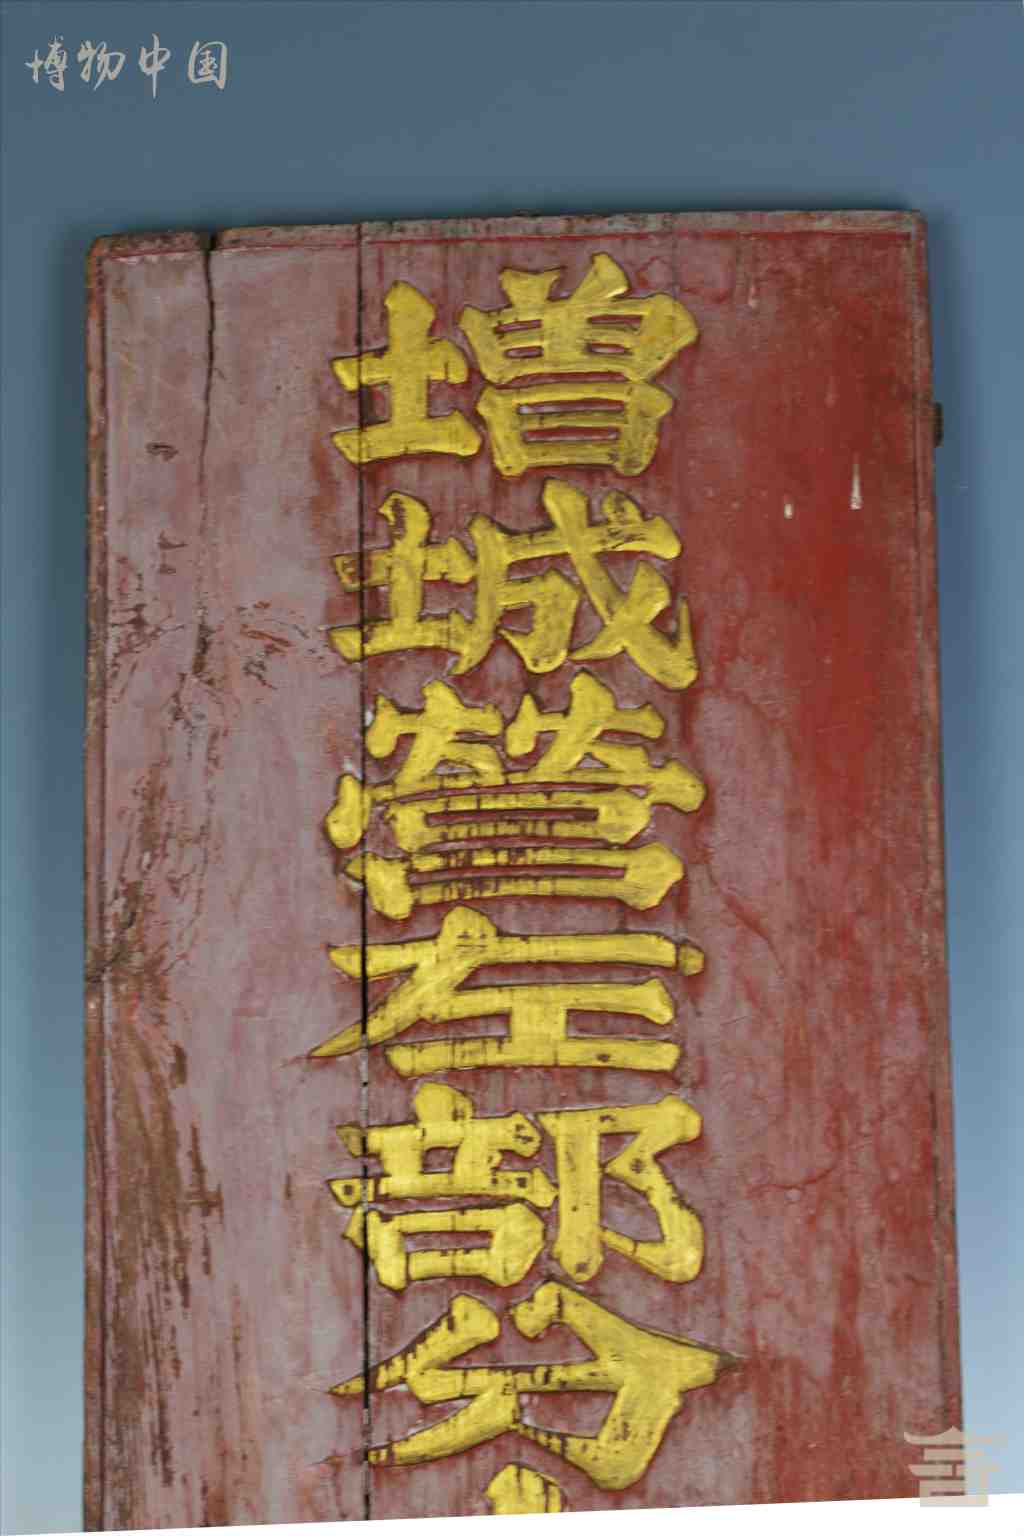 博物中国
增城营左部分